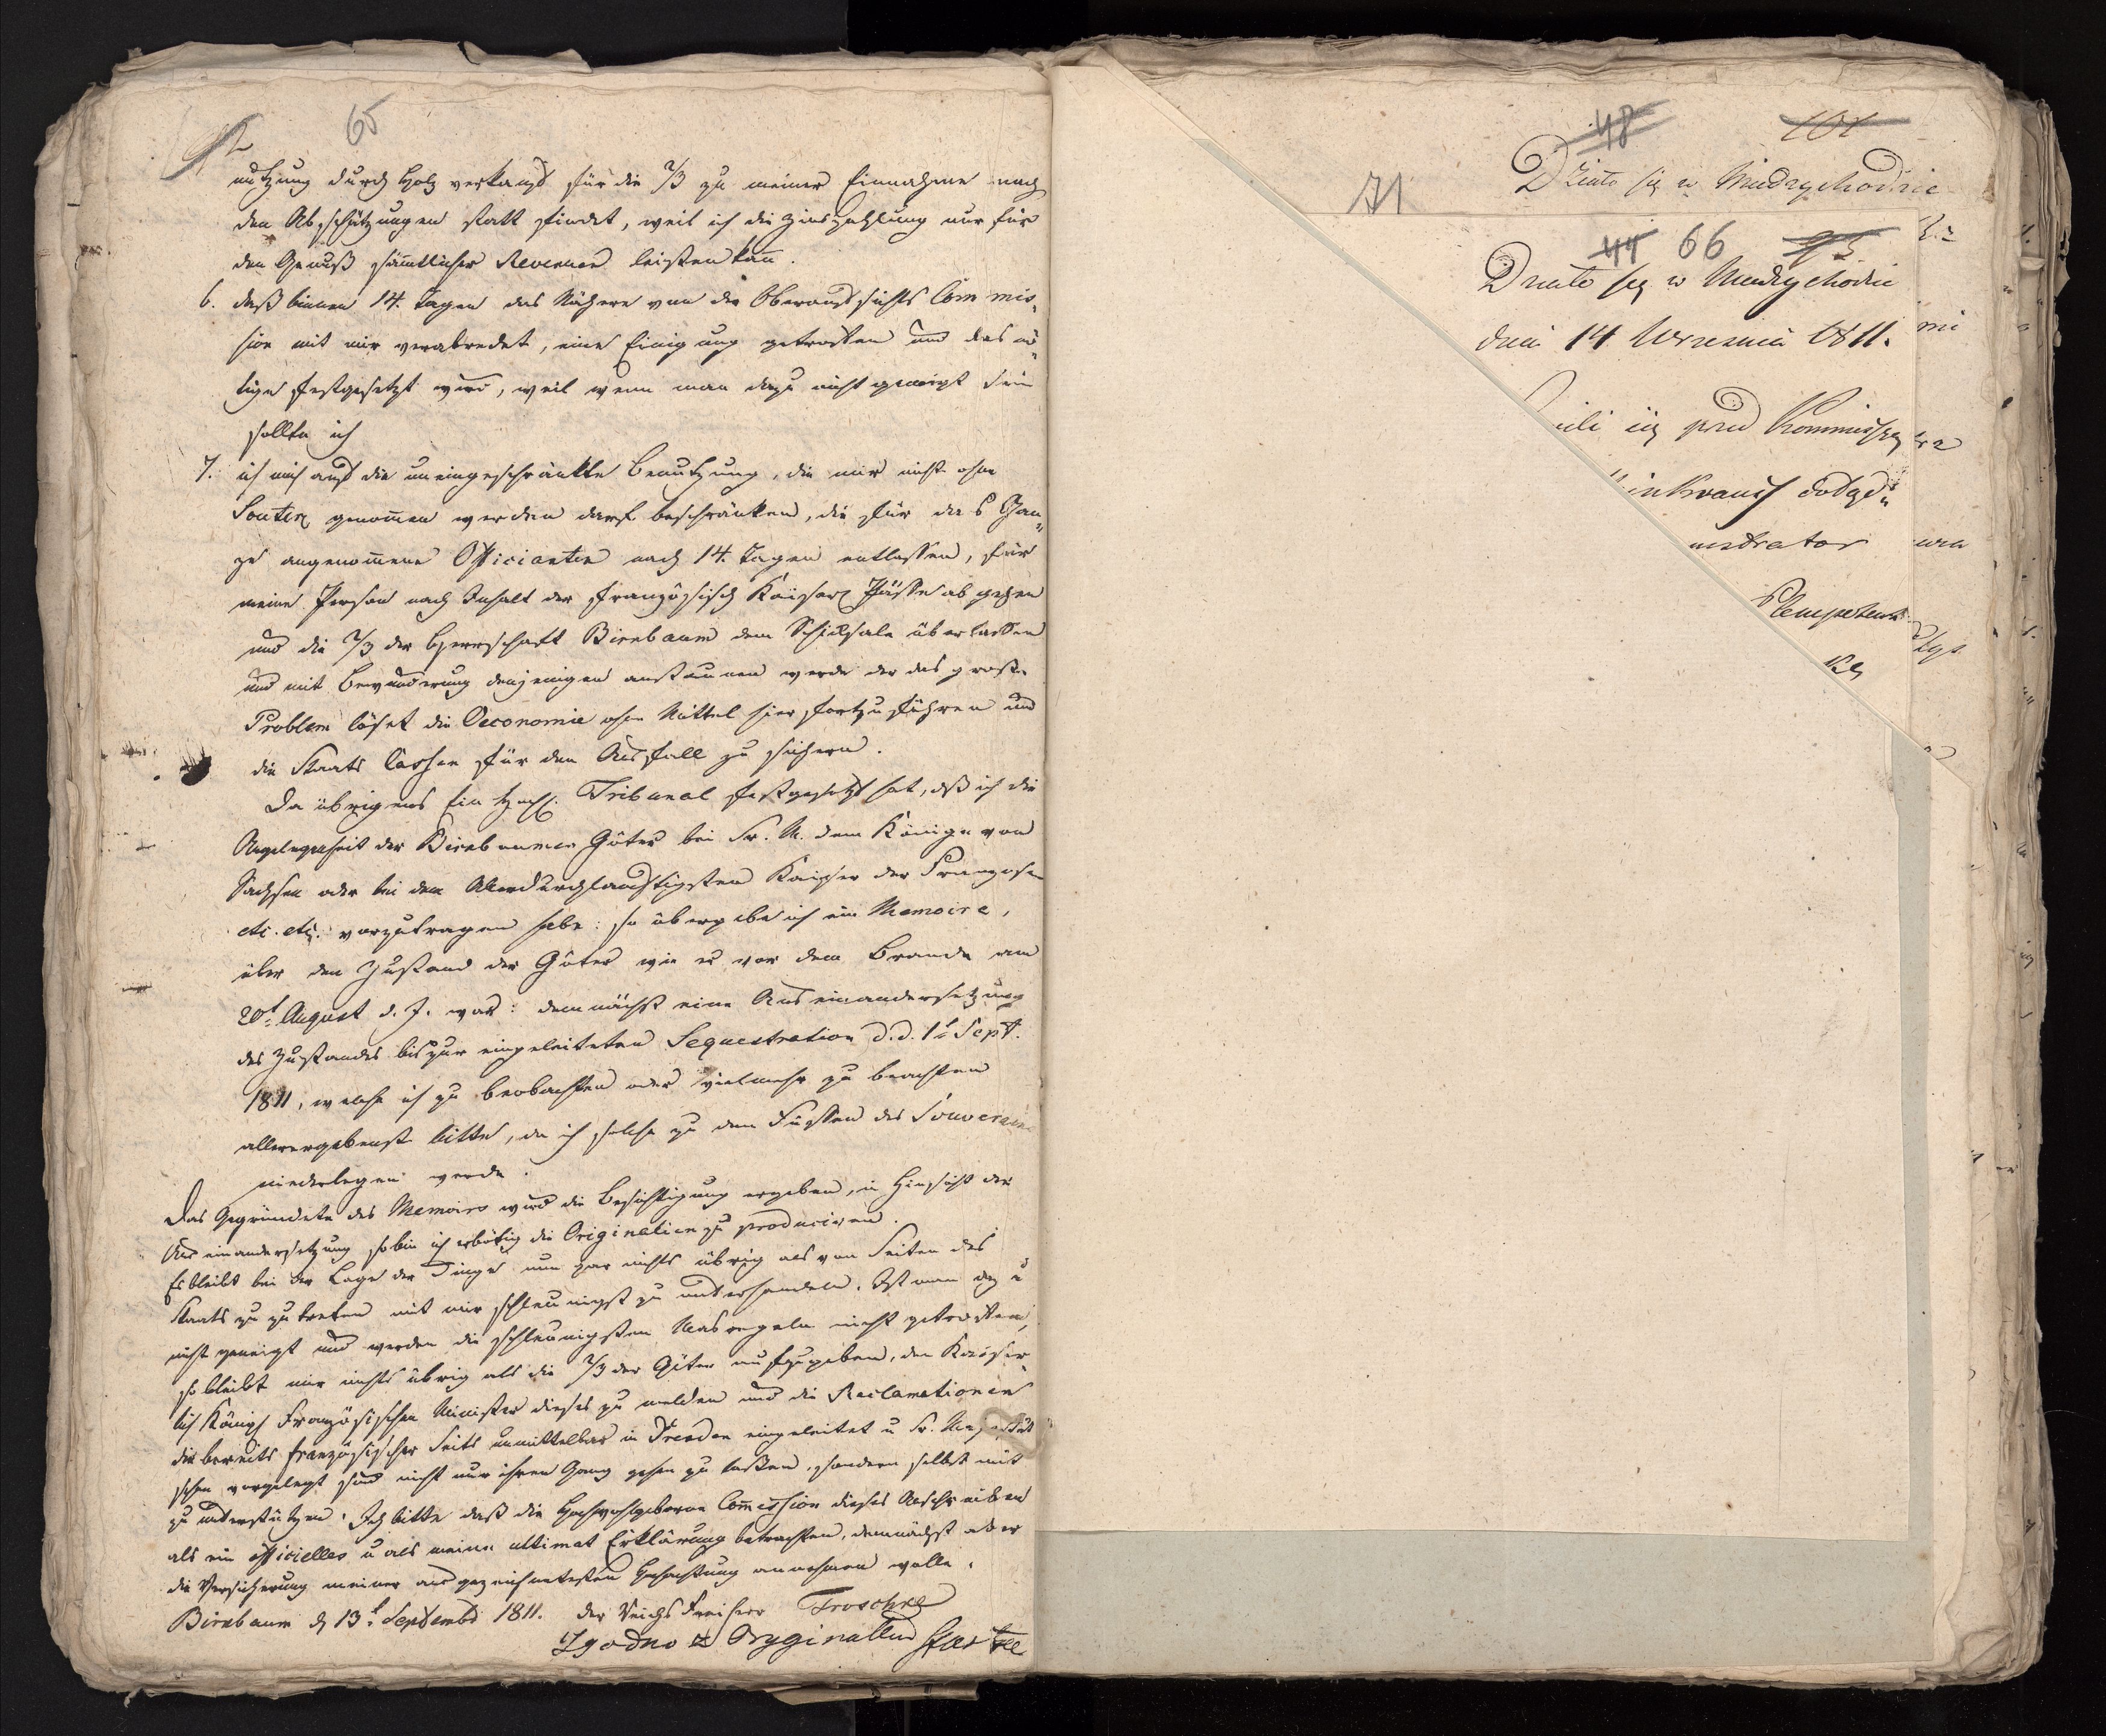 65
nutzung durch Holz verkauf für die 2/3 zu meiner Einnahme nach
den Abschätzungen statt findet, weil ich die Zinszahlung nur für
den Genuß sämtlicher Revenuen leisten kan.
6. daß binnen 14. Tagen das Nähere von der Oberaufsichts Commis„
sion mit mir verabredet, eine Einigung getroffen und das nö„
tige festgesetzt wird, weil wenn man dazu nicht geneigt sein
sollte ich
7. ich mich auf die uneingeschränkte Benutzung, die mir nicht ohne
genomen werden darf beschränken, die für das Gan„
ze angenomene Officianten nach 14. Tagen entlassen, für
meine Person nach Inhalt der französisch Kaiserl Pässe abgehen
und die 2/3 der Herrschaft Birnbaum dem Schicksale überlassen
und mit Bewunderung denjenigen anstaunen werde der das große
Problem löset die Oeconomie ohne Mittel hier fortzuführen und
die Staats Cassen für den Ausfall zu sichern.
Da übrigens Ein Hochl. Tribunal festgesetzt hat, daß ich die
Angelegenheit der Birnbaumer Güter bei Sr. M. dem Könige von
Sachsen oder bei dem Allerdurchlauchtigsten Kaiser der Franzosen
etc. etc. vorzutragen habe: so übergebe ich ein Memoire,
über den Zustand der Güter wie er vor dem Brande am
20t August d. J. war: demnächst eine Auseinandersetzung
des Zustandes bis zur eingeleiteten Sequestration d.d. 1t Sept.
1811, welche ich zu beobachten oder vielmehr zu beachten
allerergebenst bitte, da ich solche zu den Füssen des Souverains
niederlegen werde.
Das Gegründete des Memoirs wird die Besichtigung ergeben, in Hinsicht der
Auseinandersetzung so bin ich erbötig die Originalien zu produciren.
Es bleibt bei der Lage der Dinge nun gar nichts übrig als von Seiten des
Staats zuzutreten mit mir schleunigst zu unterhandeln. Ist man dazu
nicht geneigt und werden die schleunigsten Masregeln nicht getroffen,
so bleibt mir nichts übrig als die 2/3 der Güter aufzugeben, den Kaiser„
lich Königl Französischen Minister dieses zu melden und die Reclamationen
die bereits französischer Seits unmittelbar in Dresden eingeleitet u Sr. Majestät
schon vorgelegt sind nicht nur ihren Gang gehen zu lassen, sondern selbst mit
zu unterstützen. Ich bitte daß die Hochwohlgeborne Comission dieses Anschreiben
als ein officielles u als meine ultimat Erklärung betrachten, demnächst aber
die Versicherung meiner ausgezeichnetesten Hochachtung annehmen wolle.
Birnbaum d 13t Septembr 1811. der Reichs Freiherr Troschke
Zgodno z Oryginallem
71
48 101
Działo się w Miedzychodzie
44 66 95
Działo się w Miedzychodzie
dnia 14 Wrzesnia 1811.
ili się przed Kommissyą
nistrator